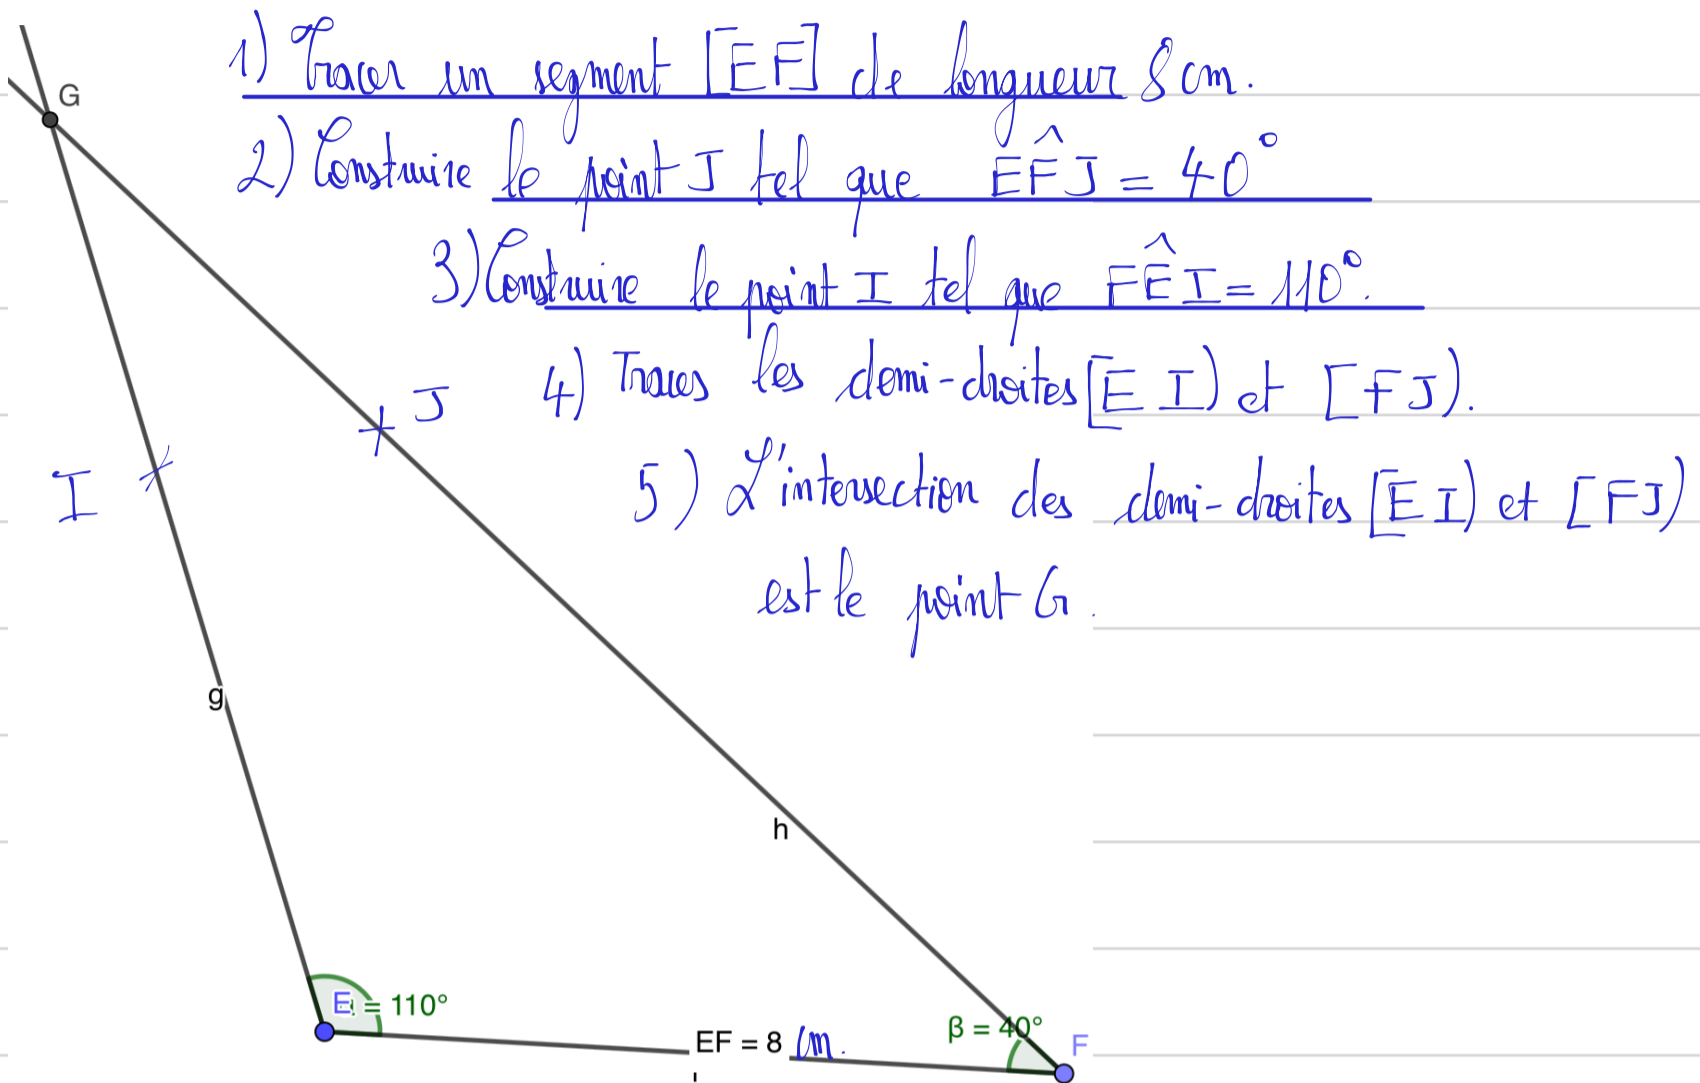 1) Tracer un segment [EF] de longueur 8 cm.
G
2) Construire le point J tel que EF̂J = 40°
3) Construire le point I tel que FÊI = 110°.
4) Traces les demi-droites [EI) et [FJ).
J
I
5) L'intersection des demi-droites [EI) et [FJ)
est le point G.
g
h
E = 110°
β = 40°
F
EF = 8 cm.